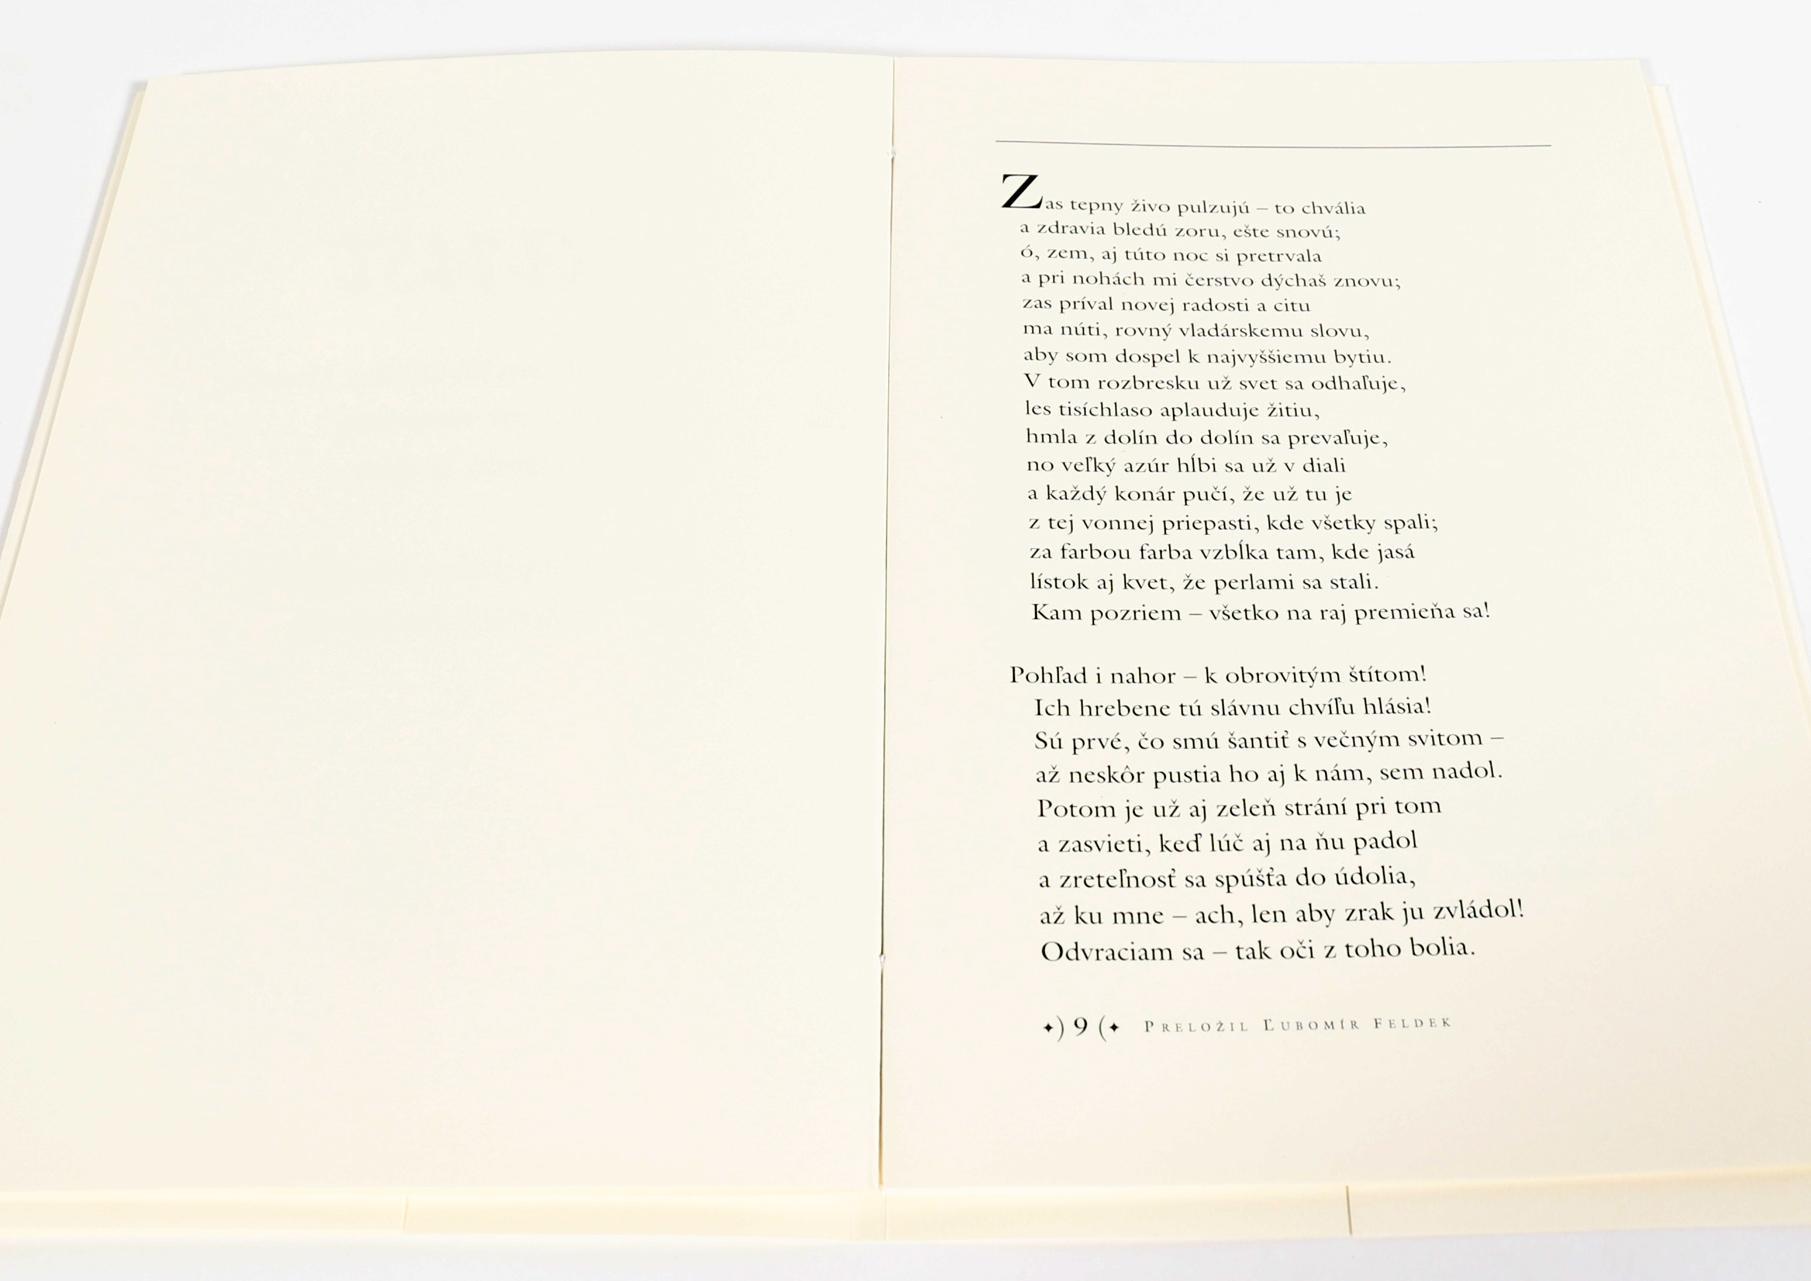 Zas tepny živo pulzujú – to chvália
a zdravia bledú zoru, ešte snovú;
ó, zem, aj túto noc si pretrvala
a pri nohách mi čerstvo dýchaš znovu;
zas príval novej radosti a citu
ma núti, rovný vladárskemu slovu,
aby som dospel k najvyššiemu bytiu.
V tom rozbresku už svet sa odhaľuje,
les tisíchlaso aplauduje žitiu,
hmla z dolín do dolín sa prevaľuje,
no veľký azúr hĺbi sa už v diali
a každý konár pučí, že už tu je
z tej vonnej priepasti, kde všetky spali;
za farbou farba vzbĺka tam, kde jasá
lístok aj kvet, že perlami sa stali.
Kam pozriem – všetko na raj premieňa sa!
Pohľad i nahor – k obrovitým štítom!
Ich hrebene tú slávnu chvíľu hlásia!
Sú prvé, čo smú šantiť s večným svitom –
až neskôr pustia ho aj k nám, sem nadol.
Potom je už aj zeleň strání pri tom
a zasvieti, keď lúč aj na ňu padol
a zreteľnosť sa spúšťa do údolia,
až ku mne – ach, len aby zrak ju zvládol!
Odvraciam sa – tak oči z toho bolia.
✦) 9 (✦ Preložil Ľubomír Feldek